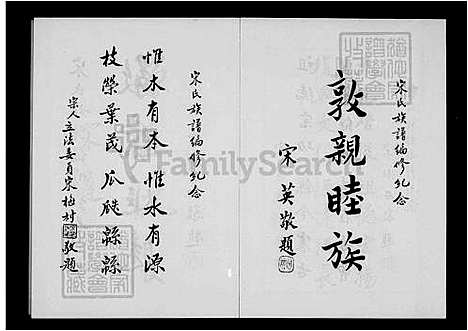 宋氏族譜編修紀念
敦親睦族
宋英敬題
宋氏族譜編修紀念
惟木有本惟水有源
枝榮葉茂瓜瓞綿綿
宗人立法委員宋梅村敬題
FamilySearch